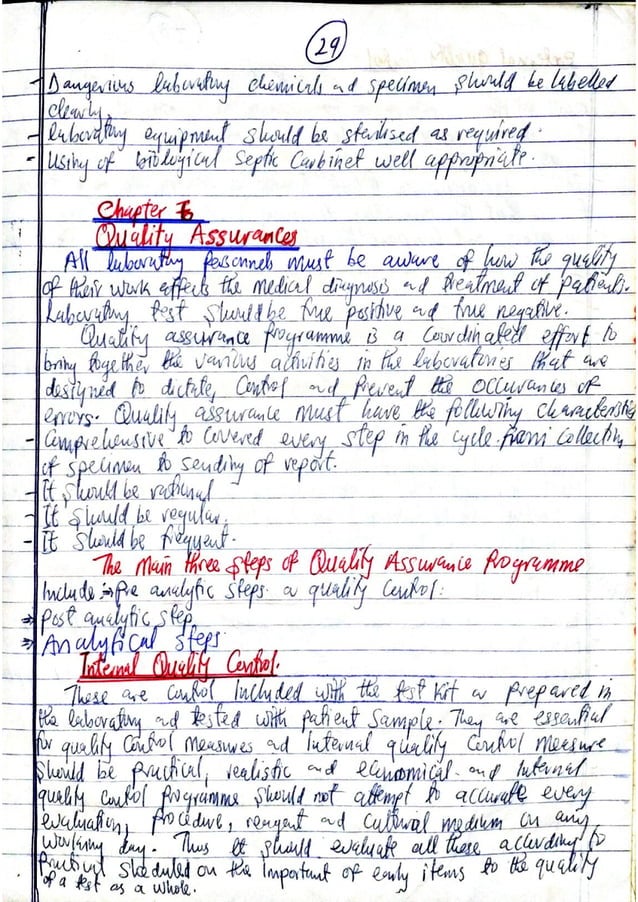 29
- Dangerious laboratory chemicals and specimen should be labelled
clearly.
- laboratory equipment should be sterilised as required.
- Using of biological Septic Carbinet well appropriate.
Chapter
Quality Assurances
All laboratory personnels must be aware of how the quality
of their work affects the medical diagnosis and treatment of patients.
Laboratory test should be true positive and true negative.
Quality assurance programme is a coordinated effort to
bring together the various activities in the laboratories that are
designed to dictate, Control and Prevent the occurances of
errors. Quality assurance must have the following characteristics
- Comprehensive to covered every step in the cycle from collection
of specimen to sending of report.
- It should be rational
- It should be regular.
- It should be frequent.
The Main three steps of Quality Assurance Programme
Include => Pre analytic steps or quality control:
=> Post analytic step
=> Analytical steps.
Internal Quality Control.
These are control included with the test kit or prepared in
the laboratory and tested with patient sample. They are essential
for quality control measures and Internal quality control measure
should be practical, realistic and economical and Internal
quality control programme should not attempt to accurate every
evaluation, procedure, reagent and cultural medium on any
working day. Thus it should evaluate all these according to
Practical sheduled on the important of early items to the quality
of a test as a whole.